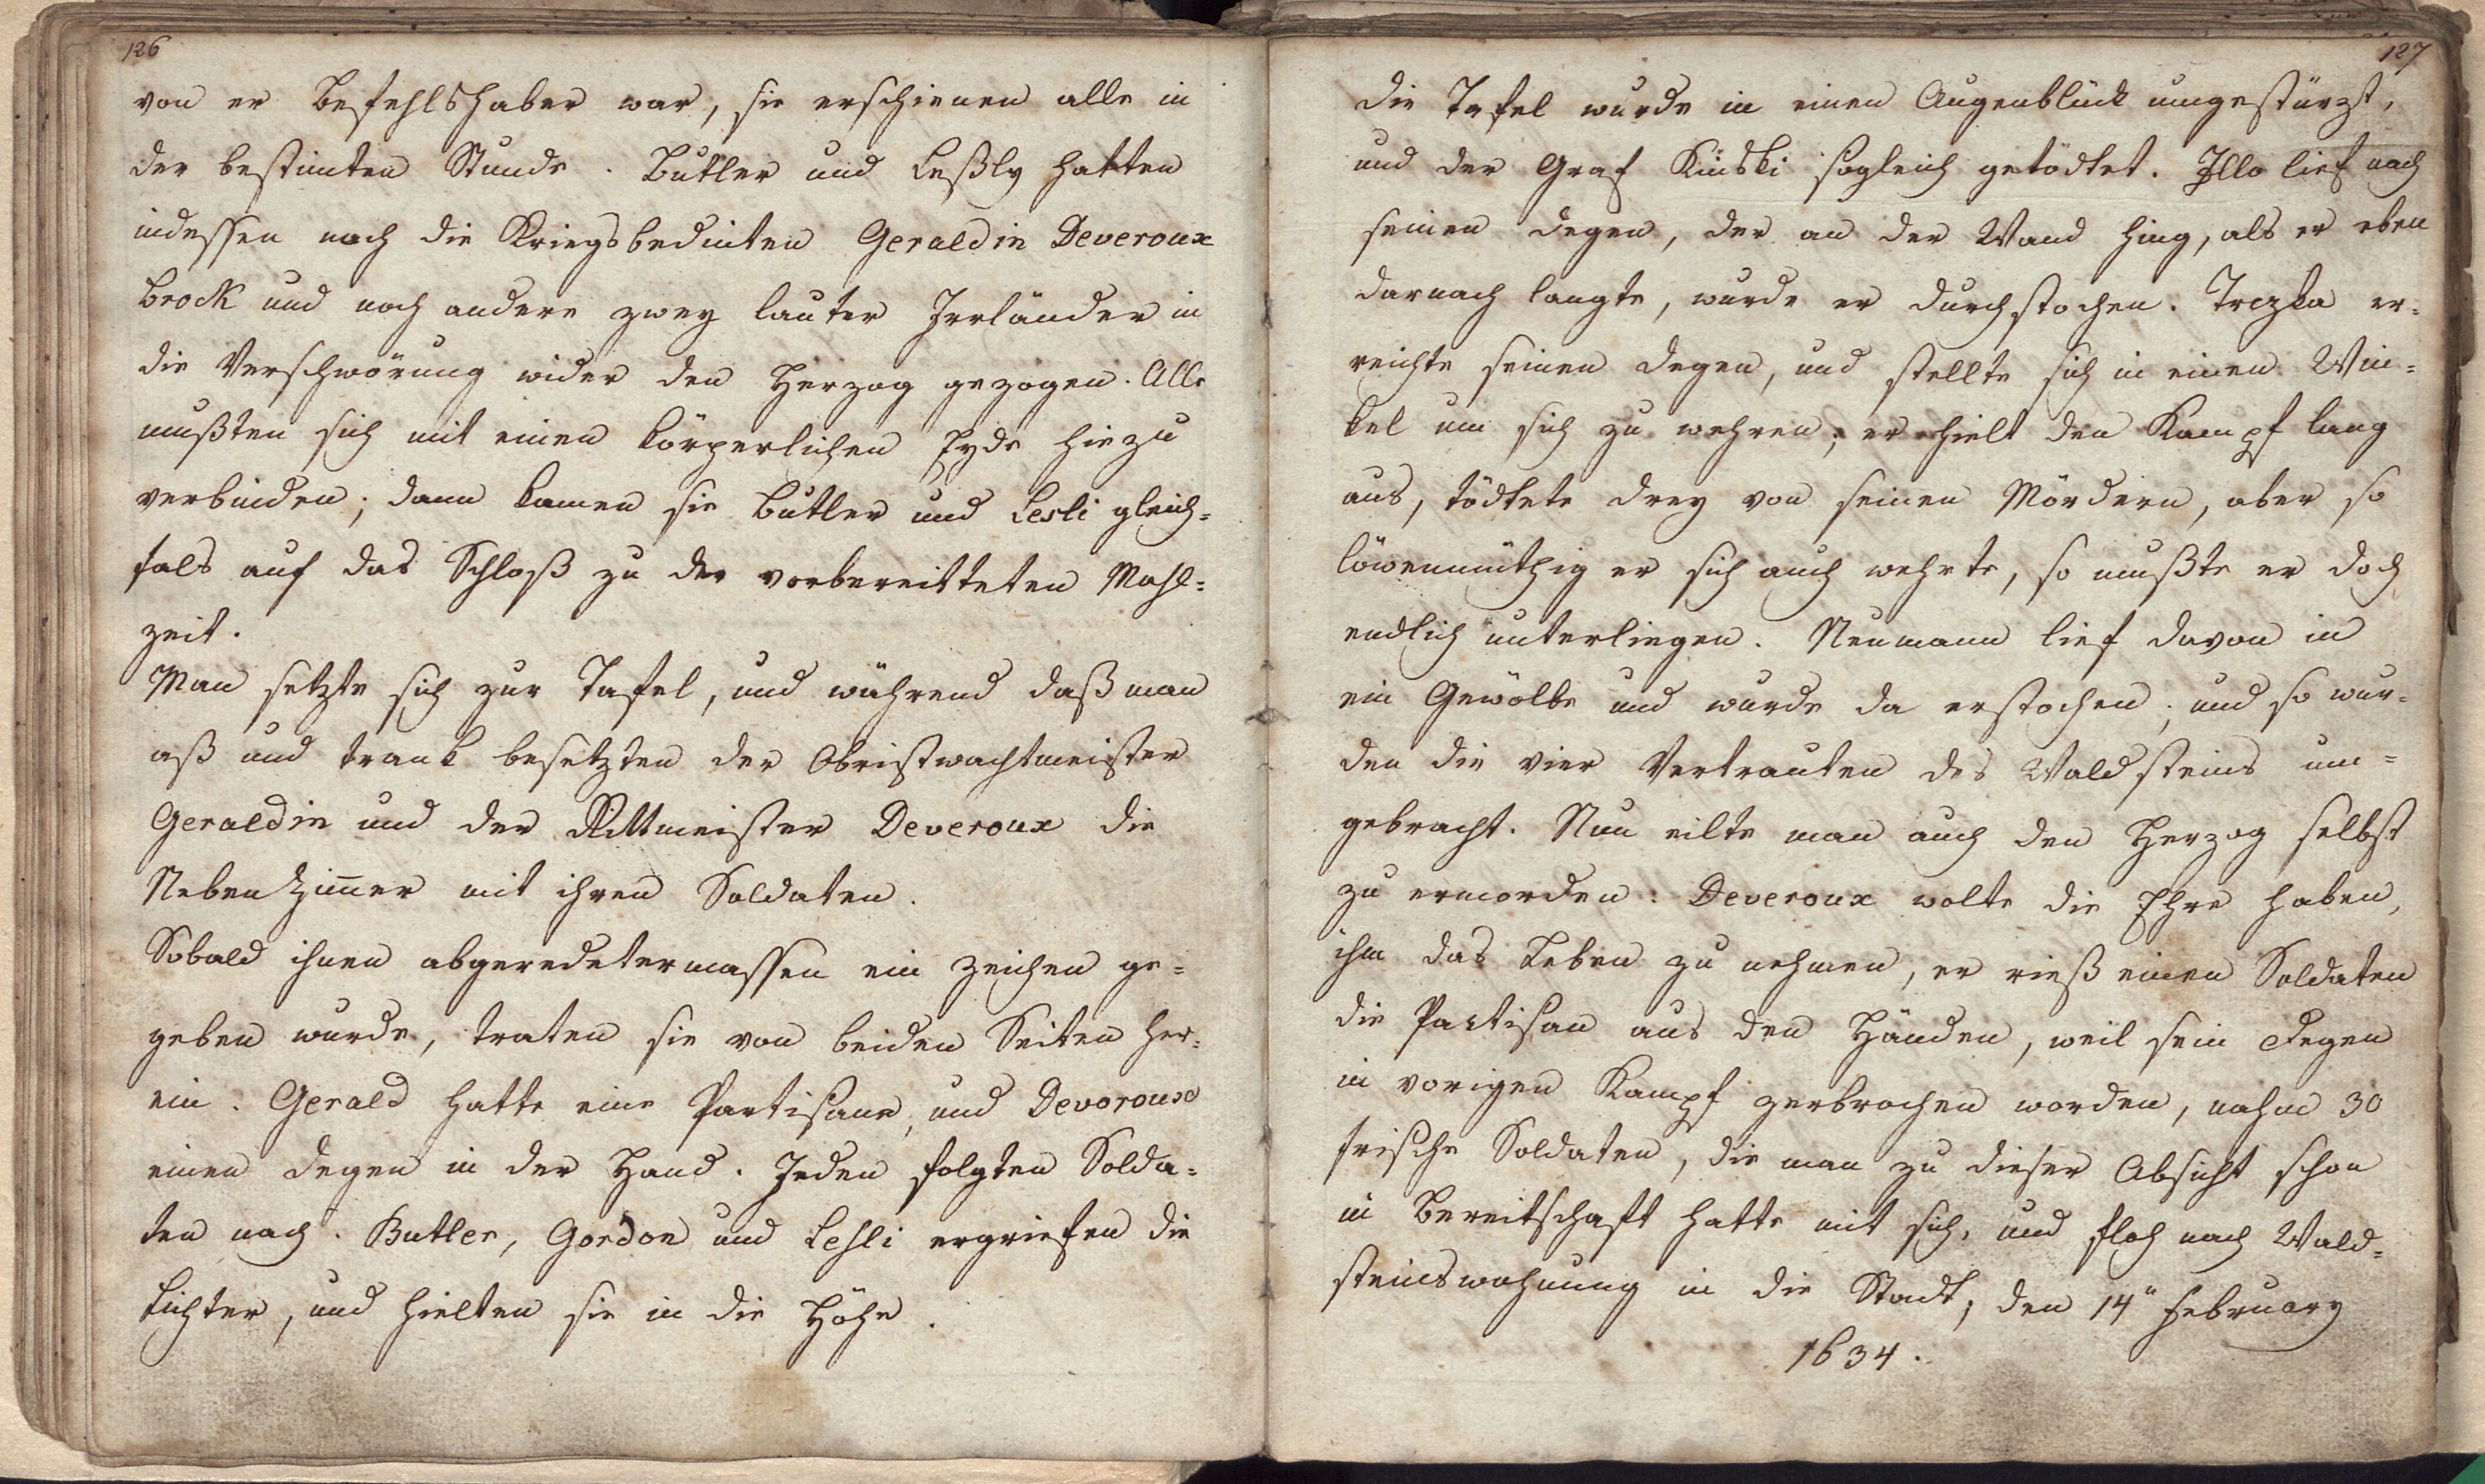 126
von er Befehlshaber war, sie erschienen alle in
der bestimten Stunde. Butler und Leßly hatten
indessen noch die Kriegsbedinten Geraldin Deveroux
Brock und noch andere zwey lauter Irrländer in
die Verschwörung wider den Herzog gezogen. Alle
mußten sich mit einen körperlichen Eyde hiezu
verbinden; dann kamen sie Butler und Lesli gleich=
fals auf das Schloß zu der vorbereitteten Mahl=
zeit.
Man setzte sich zur Tafel, und während daß man
aß und trank besetzten der Obristwachtmeister
Geraldin und der Rittmeister Deveroux die
Nebenzimer mit ihren Soldaten.
Sobald ihnen abgeredetermassen ein Zeichen ge=
geben wurde, traten sie von beiden Seiten her=
ein. Gerald hatte eine Partisane, und Devoroux
einen Degen in der Hand. Jeden folgten Solda=
ten nach. Butler, Gordon und Lesli ergriefen die
Lichter, und hielten sie in die Höhe.
127
die Tafel wurde in einen Augenblick umgestürzt,
und der Graf Kinski sogleich getödtet. Illo lief nach
seinen Degen, der an der Wand hing, als er eben
darnach langte, wurde er durchstochen. Trczka er=
reichte seinen Degen, und stellte sich in einen Win=
kel um sich zu wehren; er hielt den Kampf lang
aus, tödtete drey von seinen Mördern, aber so
löwenmüthig er sich auch wehrte, so mußte er doch
endlich unterliegen. Neumann lief davon in
ein Gewölbe und wurde da erstochen, und so wur=
den die vier Vertrauten des Waldsteins um=
gebracht. Nun eilte man auch den Herzog selbst
zu ermorden: Deveroux wolte die Ehre haben,
ihm das Leben zu nehmen, er rieß einen Soldaten
die Partisan aus den Händen, weil sein Degen
in vorigen Kampf zerbrochen worden, nahm 30
frische Soldaten, die man zu dieser Absicht schon
in Bereitschaft hatte mit sich, und floh nach Wald=
steinswohnung in die Stadt, den 14" February
1634.